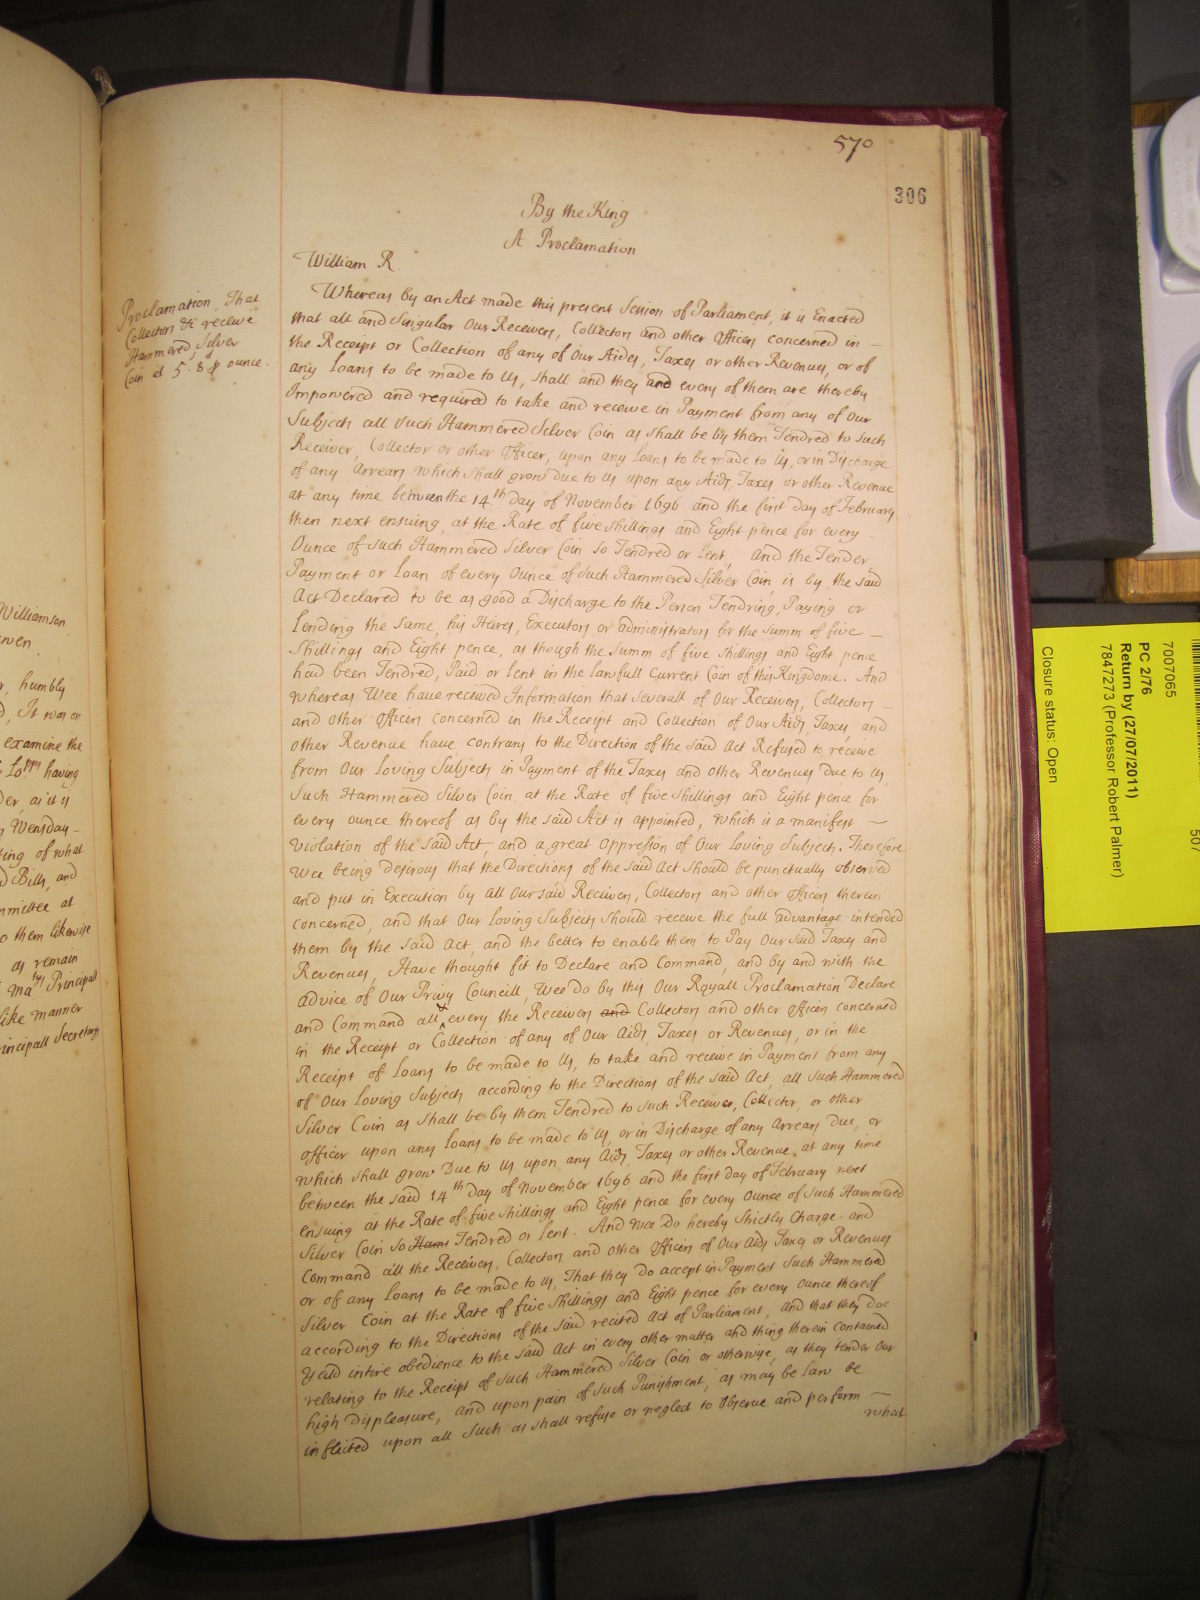 570
306
By the King
A Proclamation
William R.
Proclamation, That
Collectors &c receive
Hammered Silver
Coin at 5s. 8d p ounce.
Whereas by an Act made this present Session of Parliament, it is Enacted
that all and Singular Our Receivers, Collectors and other Officers concerned in
the Receipt or Collection of any of Our Aides, Taxes or other Revenues, or of
any Loans to be made to Us, shall and they and every of them are thereby
Impowered and required to take and receive in Payment from any of Our
Subjects all such Hammered Silver Coin as shall be by them Tendred to such
Receiver, Collector or other Officer, upon any Loans to be made to Us, or in Discharge
of any Arrears which shall grow due to Us upon any Aids, Taxes or other Revenue
at any time between the 14th Day of November 1696 and the first day of February
then next ensuing, at the Rate of five shillings and Eight pence for every
Ounce of such Hammered Silver Coin so Tendred or lent, And the Tender,
Payment or Loan of every Ounce of such Hammered Silver Coin, is by the said
Act Declared to be as good a Discharge to the Person Tendring, Paying or
Lending the same, his Heires, Executors or administrators for the summ of five
shillings and Eight pence, as though the summ of five shillings and Eight pence
had been Tendred, Paid or lent in the lawfull Current Coin of this Kingdome. And
whereas Wee have received Information that severall of Our Receivers, Collectors
and other Officers concerned in the Receipt and Collection of Our Aids, Taxes, and
other Revenue have contrary to the Direction of the said Act Refused to receive
from Our Loving Subjects in Payment of the Taxes and other Revenues due to Us
Such Hammered Silver Coin at the Rate of five Shillings and Eight pence for
every ounce thereof as by the said Act is appointed, which is a manifest
violation of the said Act, and a great Oppression of Our Loving Subjects. Therefore
Wee being desirous that the Directions of the said Act should be punctually observed
and put in Execution by all Our said Receivers, Collectors and other Officers therein
concerned, and that Our Loving Subjects should receive the full advantage intended
them by the said Act, and the better to enable them to Pay Our said Taxes and
Revenues, Have thought fit to Declare and Command, and by and with the
advice of Our Privy Councill, Wee do by this Our Royall Proclamation Declare
and Command all & every the Receivers and Collectors and other Officers concerned
in the Receipt or Collection of any of Our Aids, Taxes or Revenues, or in the
Receipt of Loans to be made to Us, to take and receive in Payment from any
of Our Loving Subjects according to the Directions of the said Act, all such Hammered
Silver Coin as shall be by them Tendred to such Receiver, Collector, or other
Officer upon any Loans to be made to Us, or in Discharge of any Arrears Due, or
which shall grow Due to Us upon any Aids, Taxes or other Revenue, at any time
between the said 14th Day of November 1696 and the first day of February next
ensuing at the Rate of five Shillings and Eight pence for every Ounce of such Hammered
Silver Coin so Ham Tendred or lent. And Wee Do hereby Strictly Charge and
Command all the Receivers, Collectors and other Officers of Our Aids Taxes or Revenues
or of any Loans to be made to Us, That they do accept in Payment such Hammered
Silver Coin at the Rate of five Shillings and Eight pence for every Ounce thereof
according to the Directions of the said recited Act of Parliament, and that they doe
Yeild intire obedience to the said Act in every other matter and thing therein contained
relating to the Receipt of such Hammered Silver Coin or otherwise, as they tender Our
high Displeasure, and upon pain of such Punishment, as may be Law be
inflicted upon all such as shall refuse or neglect to Observe and perform
what
Williamson
humbly
It was on
examine the
Lopps having
der, as it is
Wensday
ting of what
Bills, and
mmittee at
to them likewise
as remain
Maty Principall
like manner
incipall Secretary
7007065
PC 2/76
Return by (27/07/2011)
7847273 (Professor Robert Palmer)
Closure status: Open